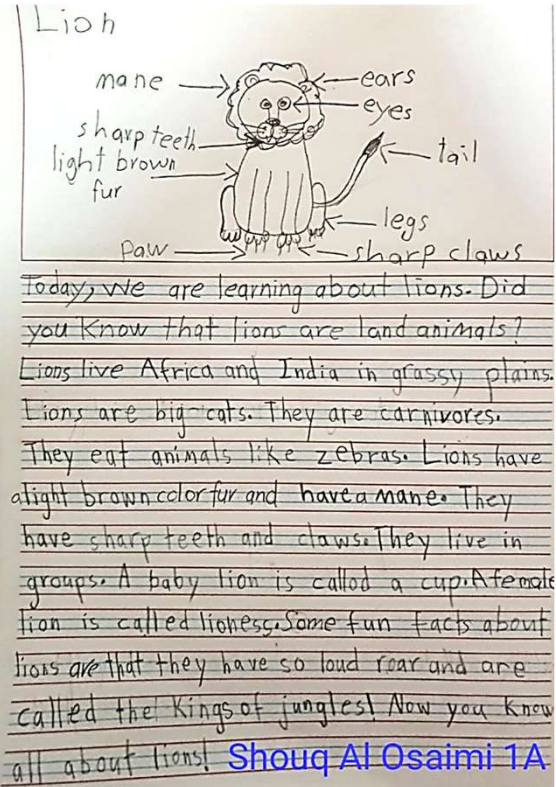 Lion
mane
ears
eyes
sharp teeth
light brown
fur
tail
legs
paw
sharp claws
Today, we are learning about lions. Did
you know that lions are land animals?
Lions live Africa and India in grassy plains.
Lions are big cats. They are carnivores.
They eat animals like zebras. Lions have
a light brown color fur and have a mane. They
have sharp teeth and claws. They live in
groups. A baby lion is called a cup. A female
lion is called lioness. Some fun facts about
lions are that they have so loud roar and are
called the Kings of jungles! Now you know
all about lions! Shouq Al Osaimi 1A